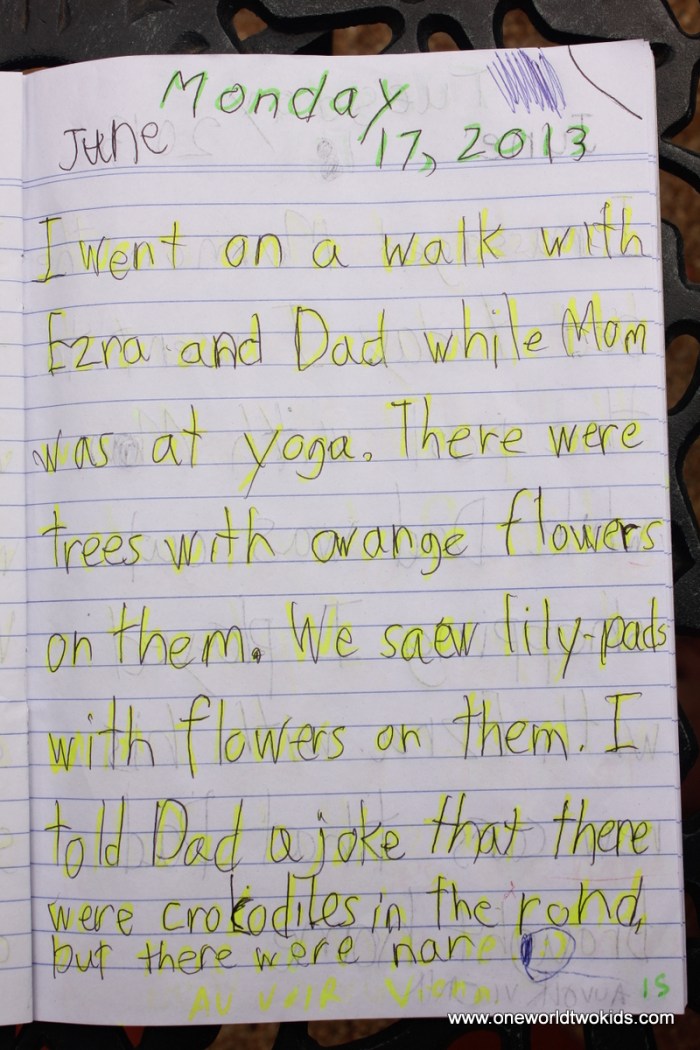 Monday
June 17, 2013
I went on a walk with
Ezra and Dad while Mom
was at yoga. There were
trees with orange flowers
on them. We saw lily-pads
with flowers on them. I
told Dad a joke that there
were crokodiles in the pond,
but there were none
15
www.oneworldtwokids.com